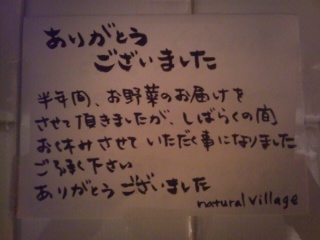 ありがとう
ございました
半年間、お野菜のお届けを
させて頂きましたが、しばらくの間
お休みさせていただく事になりました
ご了承下さい
ありがとうございました
natural village